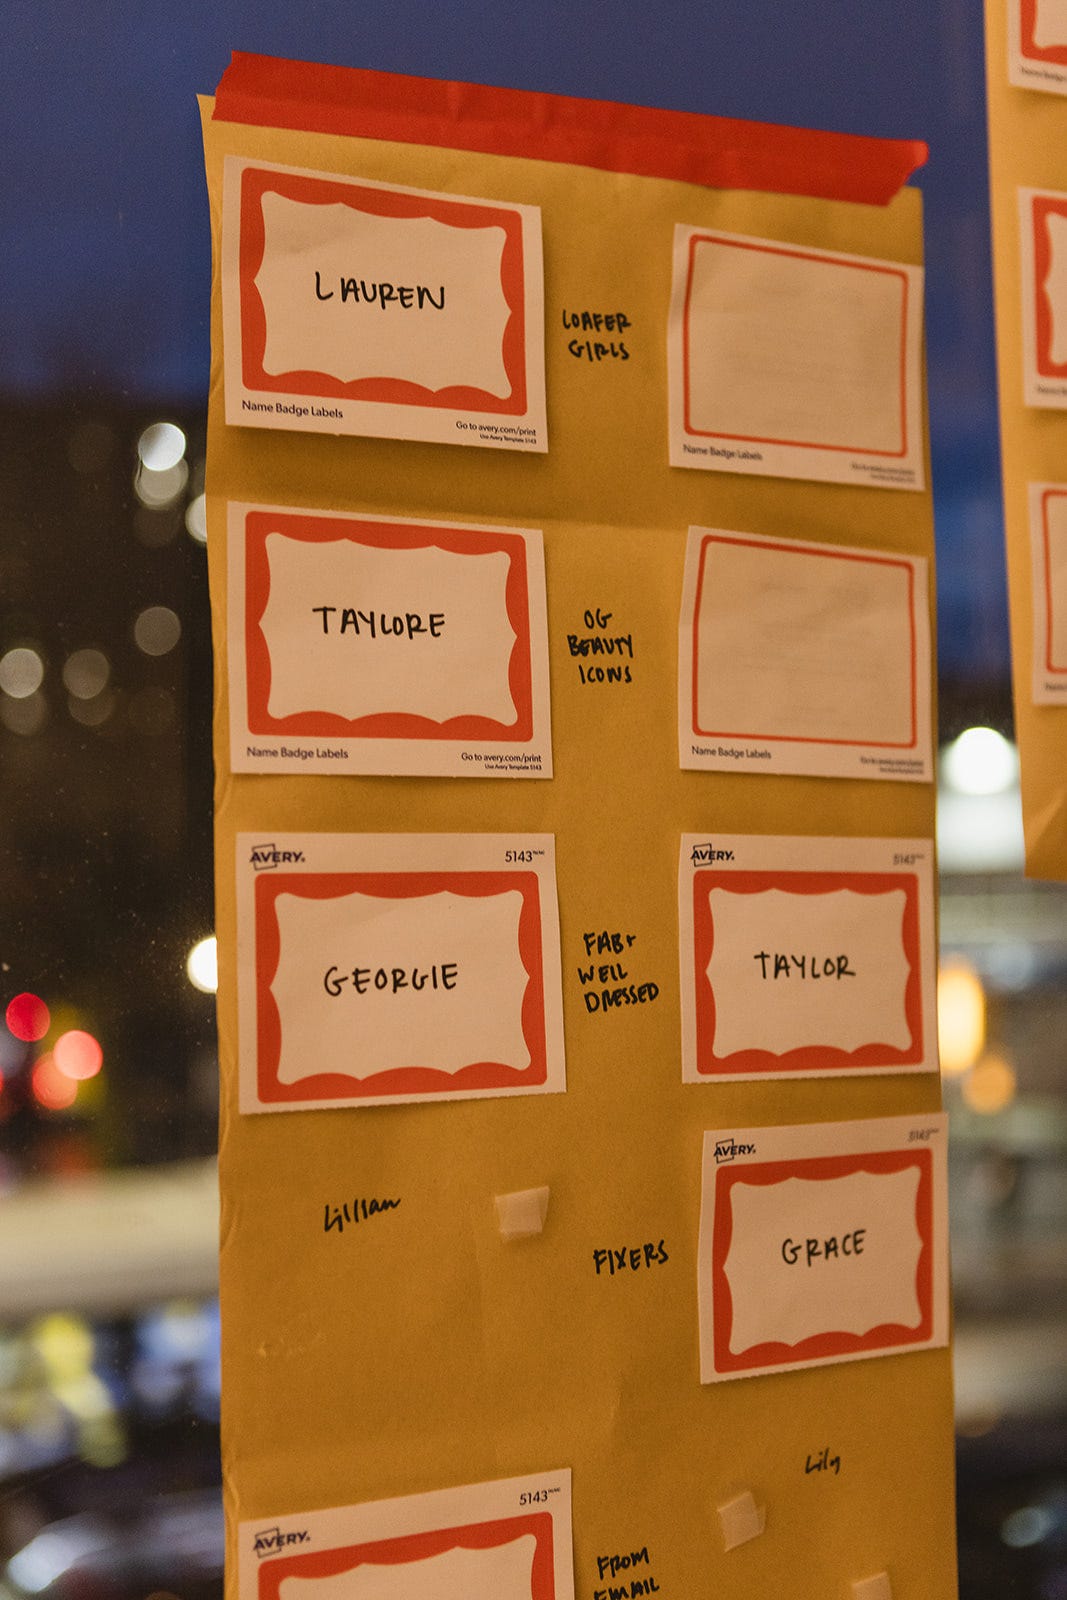 LAUREN
Name Badge Labels
Go to avery.com/print
Use Avery Template 5143
LOAFER
GIRLS
Name Badge Labels
TAYLORE
Name Badge Labels
Go to avery.com/print
Use Avery Template 5143
OG
BEAUTY
ICONS
Name Badge Labels
AVERY.
5143
GEORGIE
FAB+
WELL
DRESSED
AVERY.
5143
TAYLOR
Lillian
FIXERS
AVERY.
5143
GRACE
Lily
AVERY.
5143
FROM
EMAIL